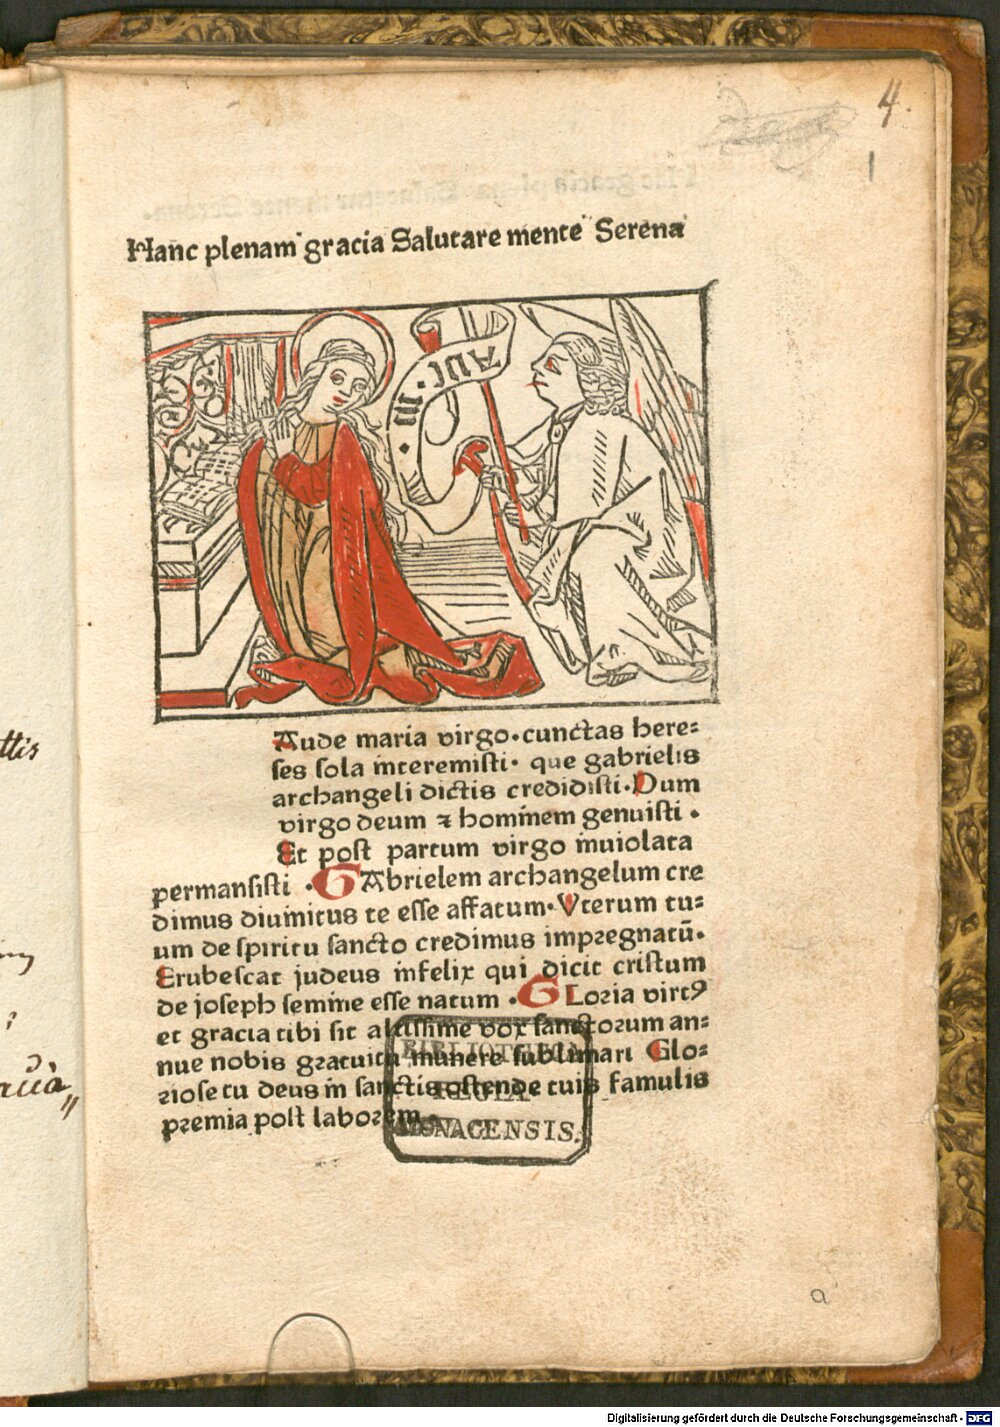 4.
1
Hanc plenam gracia Salutare mente Serena
AVE · M ·
Aude maria virgo · cunctas here⸗
ses sola interemisti · que gabrielis
archangeli dictis credidisti · Dum
virgo deum ⁊ hominem genuisti ·
Et post partum virgo inuiolata
permansisti · GAbrielem archangelum cre
dimus diuinitus te esse affatum · Vterum tu⸗
um de spiritu sancto credimus impregnatū ·
Erubescat judeus infelix qui dicit cristum
de joseph semine esse natum · GLoria virtꝰ
et gracia tibi sit altissime vox sanctorum an⸗
nue nobis gratuita munere sublimari Glo⸗
riose tu deus in sanctis ostende tuis famulis
premia post laborem ·
BIBLIOTHECA
REGIA
MONACENSIS.
a
ttis
Digitalisierung gefördert durch die Deutsche Forschungsgemeinschaft · DFG